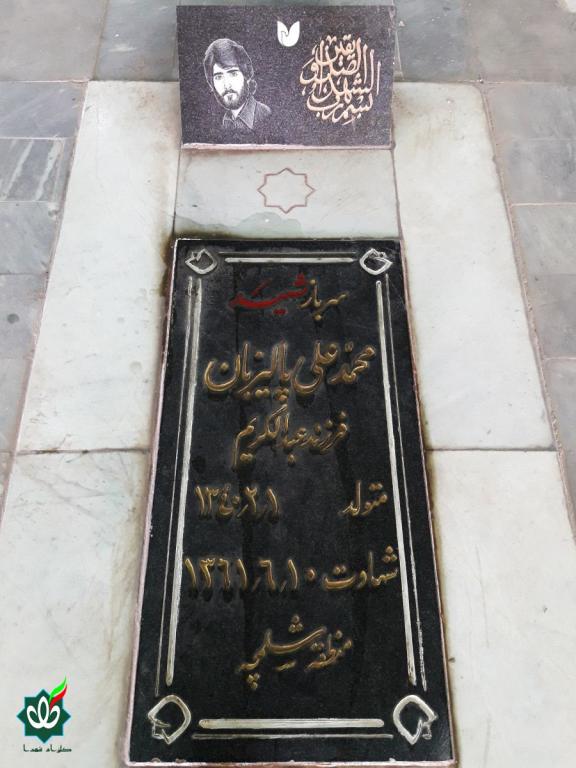 بسم رب الشهدا و الصدیقین
سرباز شهید
محمّد علی پالیزبان
فرزند عبدالکریم
متولد ۱۳۴۰٫۲٫۱
شهادت ۱۳۶۱٫۶٫۱۰
منطقه شلمچه
گلزار شهدا